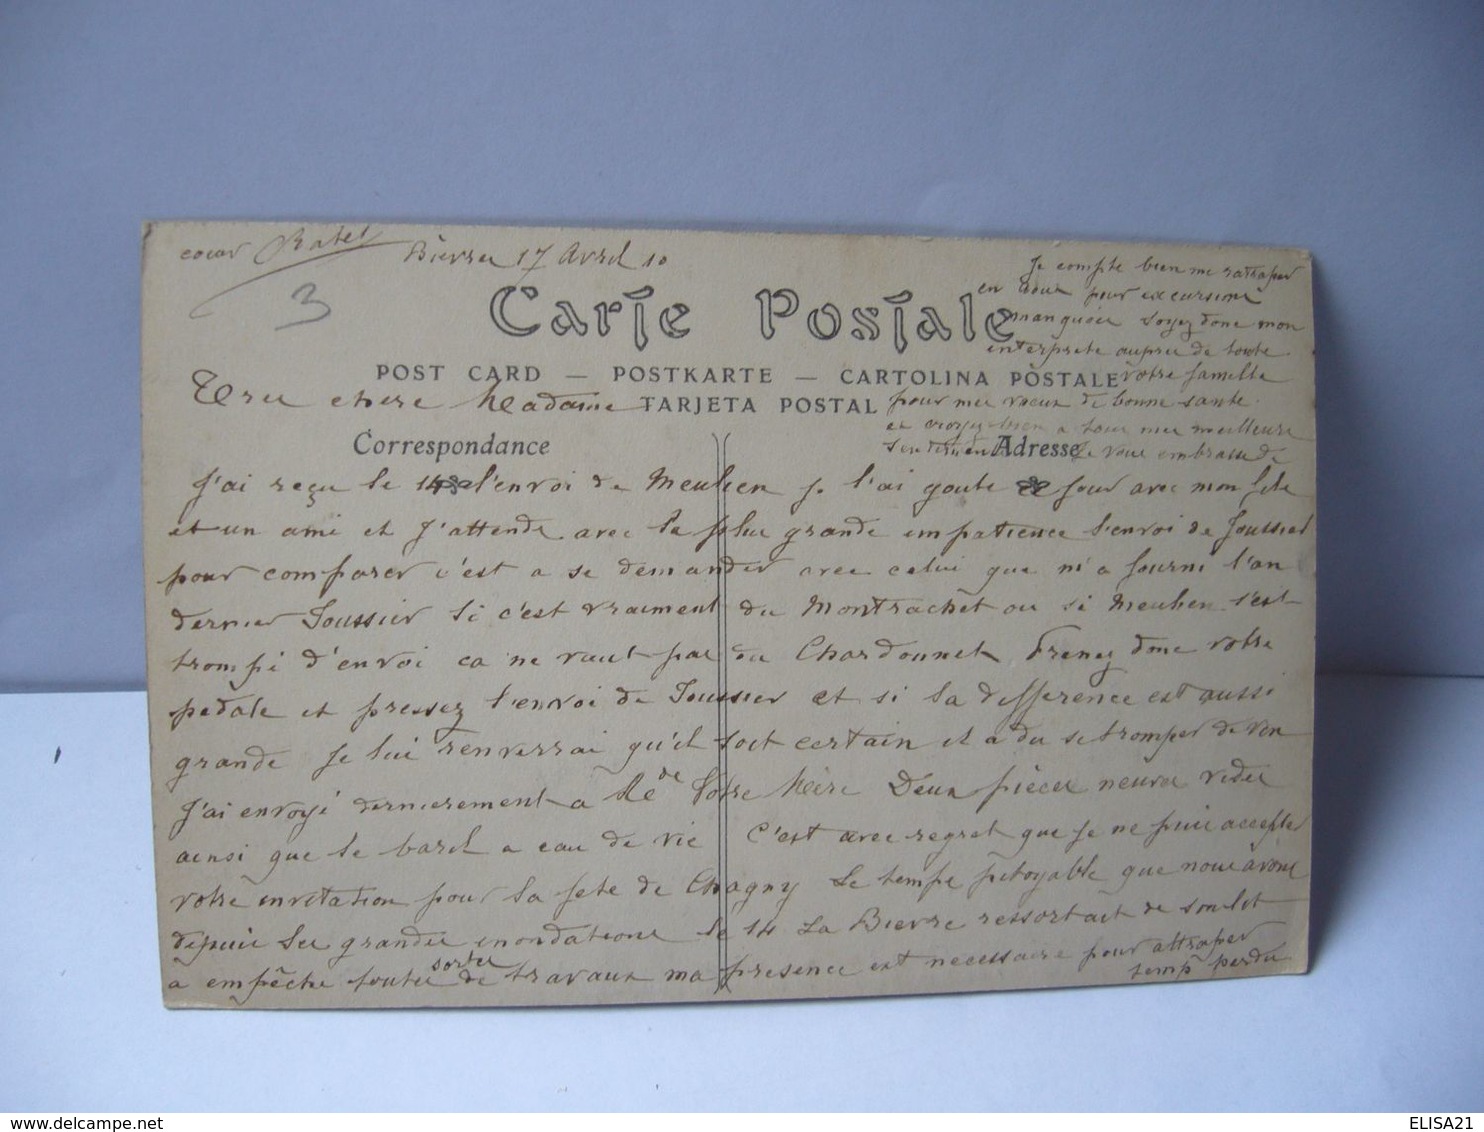 coeur Ratel
Bierre 17 Avril 10
3
Carte Postale
POST CARD — POSTKARTE — CARTOLINA POSTALE
TARJETA POSTAL
Correspondance
Adresse
Tres chere Madame
J'ai reçu le 14 l'envoi de Meulien Je l'ai goute ce jour avec mon fils
et un ami et J'attends avec la plus grande impatience l'envoi de Joussier
pour comparer c'est a se demander avec celui que m'a fourni l'an
dernier Joussier si c'est vraiment du Montrachet ou si Meulien s'est
trompé d'envoi ca ne vaut pas du Chardonnet Prenez donc votre
pedale et pressez l'envoi de Joussier et si la difference est aussi
grande Je lui renverrai qu'il soit certain il a du se tromper de vin
J'ai envoyé dernierement a Me de Votre Mère Deux pièces neuves vides
ainsi que le baril a eau de vie C'est avec regret que Je ne puis accepter
votre invitation pour la fete de Chagny Le temps pitoyable que nous avons
depuis les grandes inondations le 14 La Bierre ressortait de son lit
a empêche toutes sortes de travaux ma presence est necessaire pour attraper
temps perdu
Je compte bien me rattraper
en aout pour excursions
manquées Soyez donc mon
interprete aupres de toute
votre famille
pour mes voeux de bonne sante
et croyez bien a tous mes meilleurs
sentiments Je vous embrasse
ELISA21